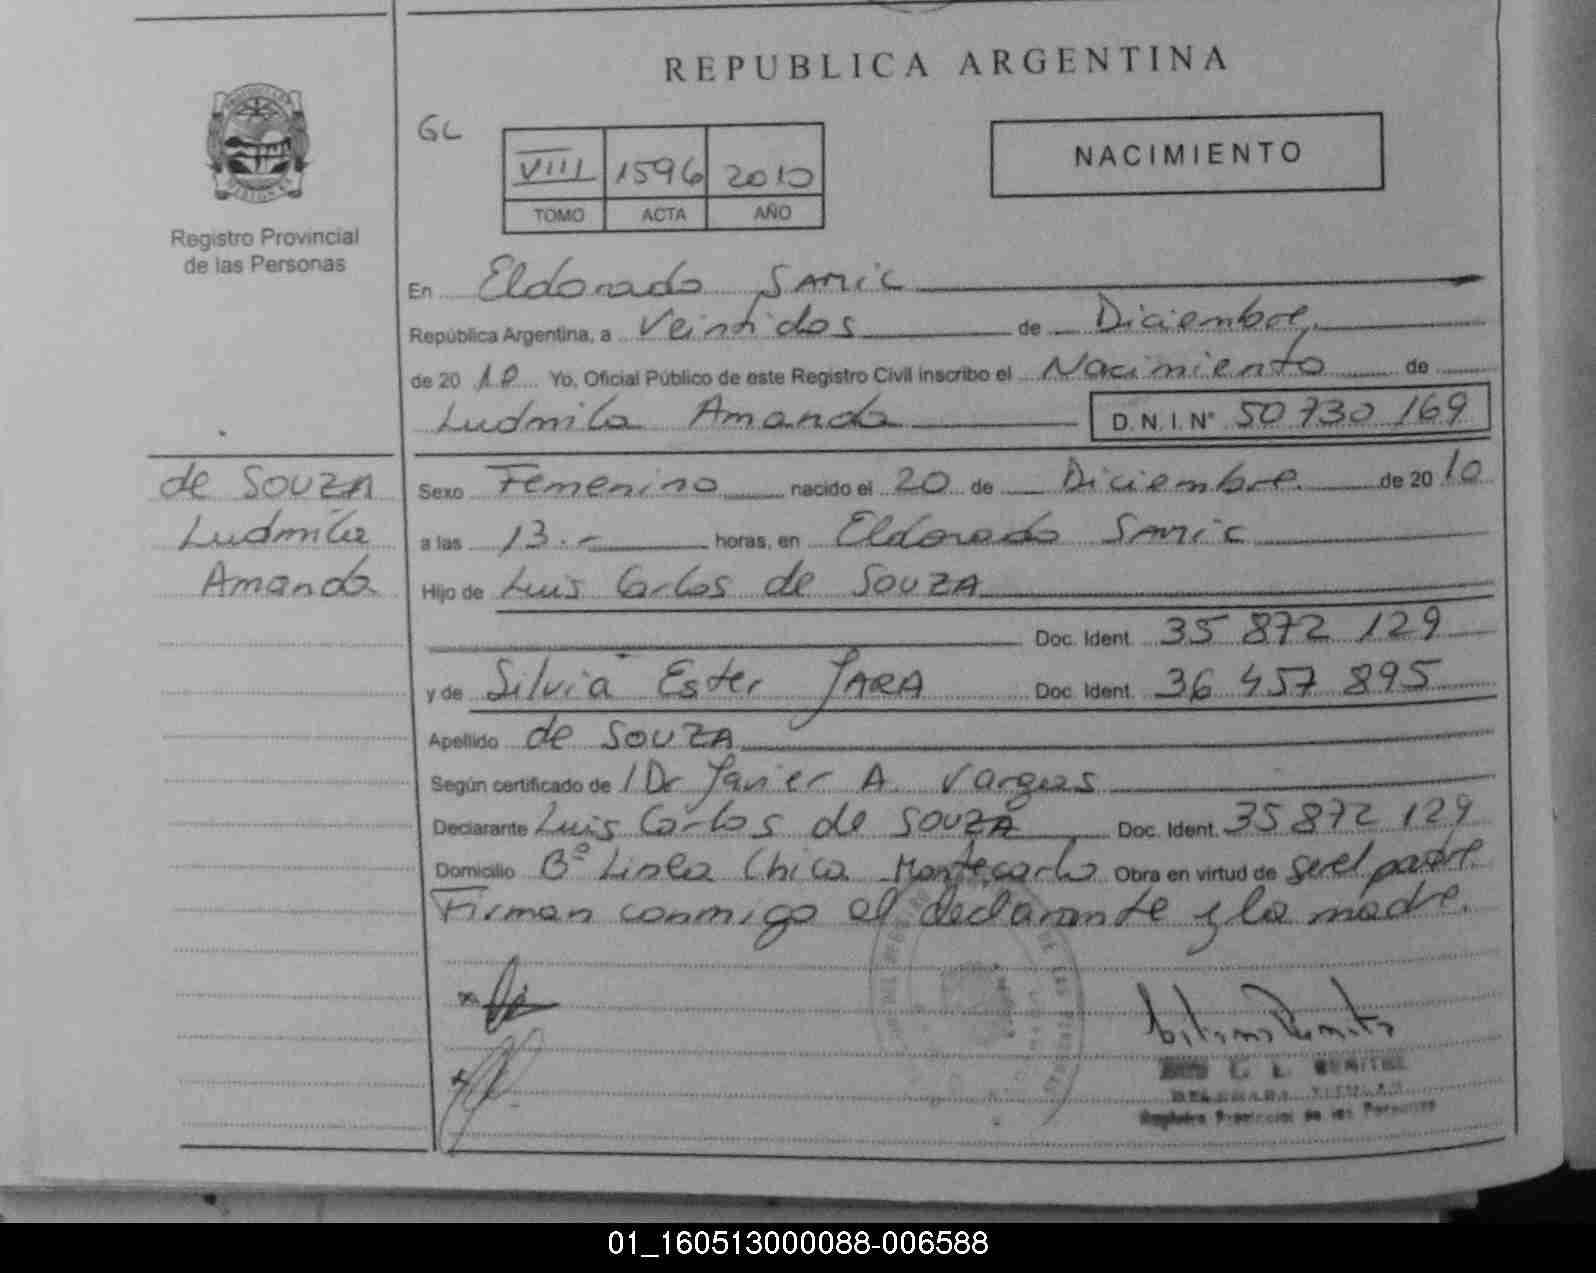 REPUBLICA ARGENTINA
GL
VIII 1596 2010
TOMO ACTA AÑO
NACIMIENTO
Registro Provincial
de las Personas
En Eldorado SAMIC
República Argentina, a Veintidos de Diciembre,
de 20 10 Yo, Oficial Público de este Registro Civil inscribo el Nacimiento de
Ludmila Amanda D.N.I.Nº 50 730 169
de SOUZA
Ludmila
Amanda
Sexo Femenino nacido el 20 de Diciembre de 20 10
a las 13.- horas, en Eldorado SAMIC
Hijo de Luis Carlos de SOUZA
Doc. Ident. 35 872 129
y de Silvia Ester JARA Doc. Ident. 36 457 895
Apellido de SOUZA
Según certificado de Dr Javier A. Vargas
Declarante Luis Carlos de SOUZA Doc. Ident. 35 872 129
Domicilio Bº Linea Chica Montecarlo Obra en virtud de ser el padre.
Firman conmigo el declarante y la madre.
Registro Provincial de las Personas
01_160513000088-006588